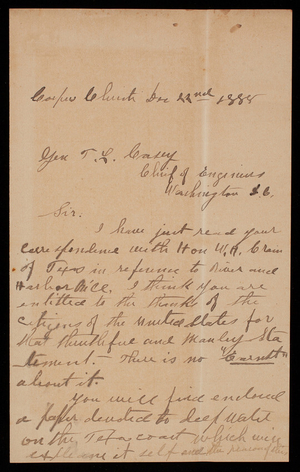 Corpus Christi Dec 22nd 1888
Gen T. L. Casey
Chief of Engineers
Washington D.C.
Sir.
I have just read your
correspondence with Hon W. H. Crain
of Texas in reference to River and
Harbor Bill. I think you are
entitled to the thanks of the
citizens of the United States for
that truthful and manly sta
tement. – There is no
about it.
You will find enclosed
a paper devoted to deep water
on the Texas coast which will
explain it self and the